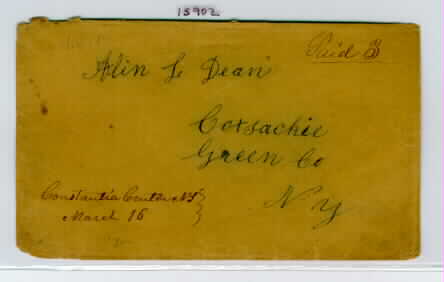 15902
Paid 3
Alin L Dean
Coxsachie
Green Co
N Y
Constantia Center NY
March 16